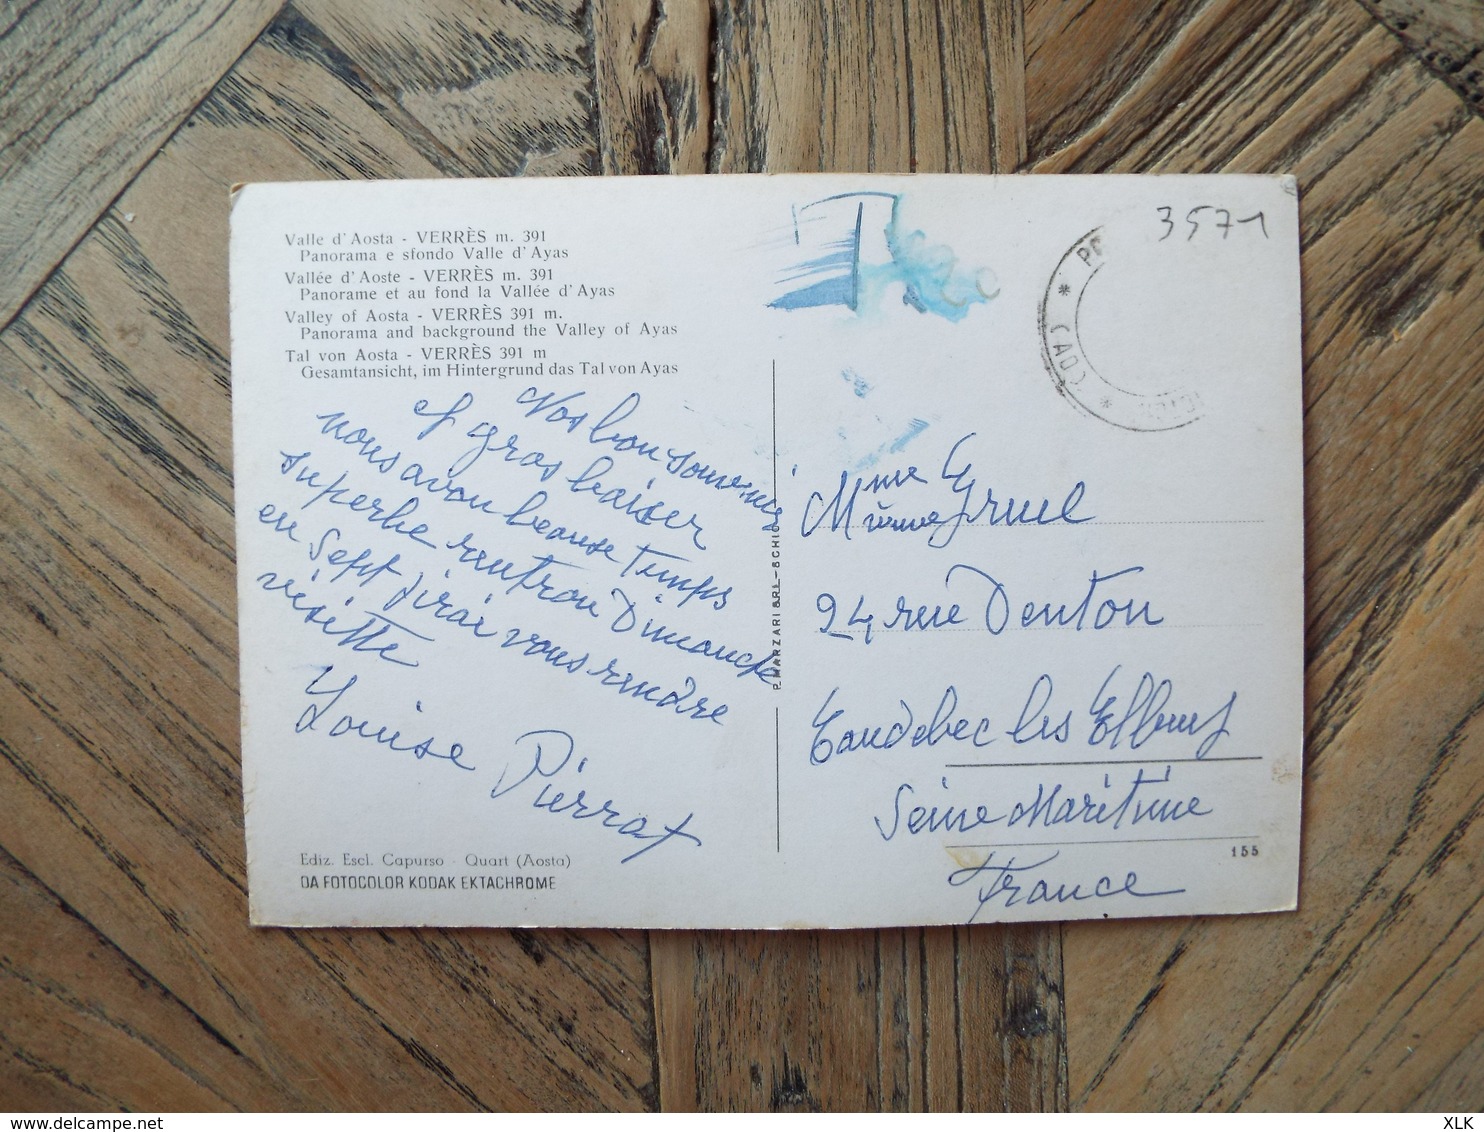 Valle d'Aosta - VERRÈS m. 391
Panorama e sfondo Valle d'Ayas
Vallée d'Aoste - VERRÈS m. 391
Panorame et au fond la Vallée d'Ayas
Valley of Aosta - VERRÈS 391 m.
Panorama and background the Valley of Ayas
Tal von Aosta - VERRÈS 391 m
Gesamtansicht, im Hintergrund das Tal von Ayas
Nos bon souvenir
et gros baiser
nous avon beause temps
superbe rentron Dimanche
en Sept j'irai vous rendre
visitte
Louise Pierrat
Ediz. Escl. Capurso - Quart (Aosta)
DA FOTOCOLOR KODAK EKTACHROME
P. MARZARI S.R.L. - SCHIO
T
3571
* PO
(AO) *
Mme Gruel
24 rue Denton
Caudebec les Elbeuf
Seine Maritime
France
155
delcampe.net
XLK